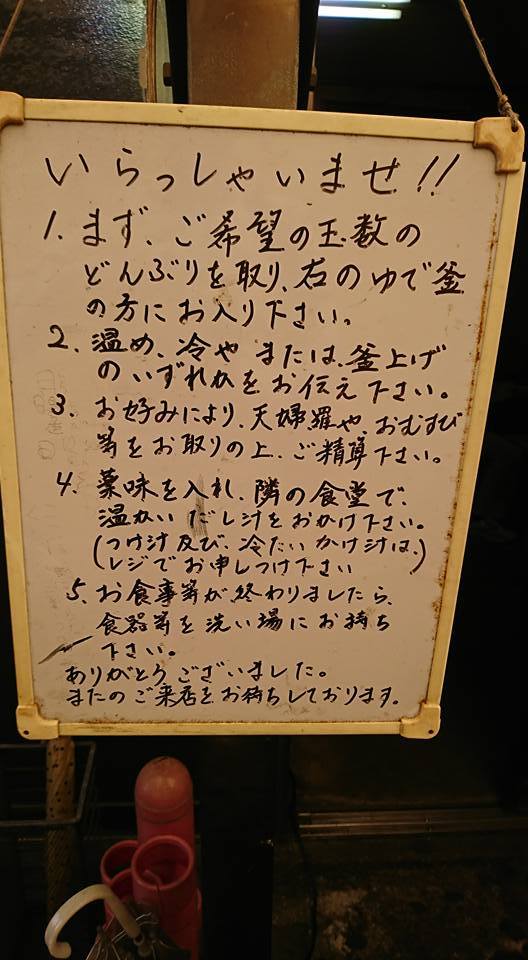 いらっしゃいませ!!
1. まず、ご希望の玉数の
どんぶりを取り、右のゆで釜
の方にお入り下さい。
2. 温め、冷や または、釜上げ
のいずれかをお伝え下さい。
3. お好みにより、天婦羅や、おむすび
等をお取りの上、ご精算下さい。
4. 薬味を入れ、隣の食堂で、
温かいだし汁をおかけ下さい。
(つけ汁及び、冷たいかけ汁は、)
(レジでお申しつけ下さい
5. お食事等が終わりましたら、
食器等を洗い場にお持ち
下さい。
ありがとうございました。
またのご来店をお待ちしております。